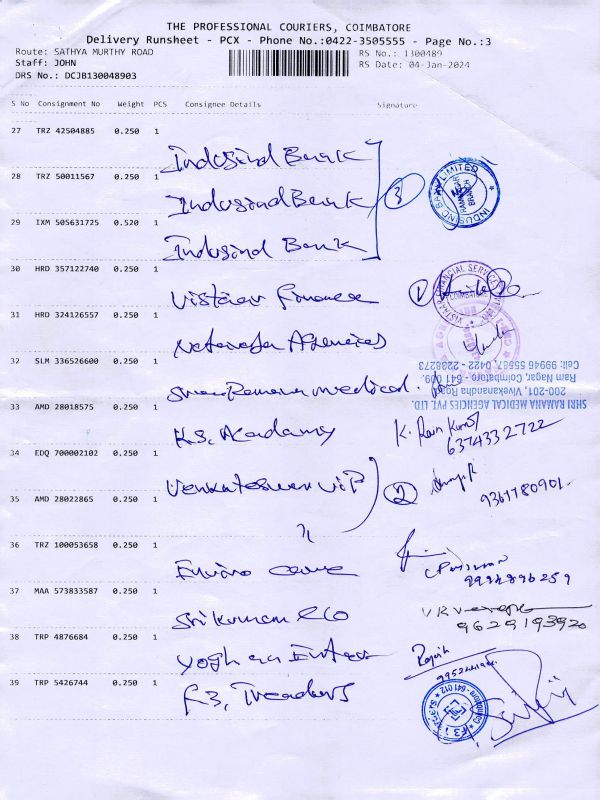 THE PROFESSIONAL COURIERS, COIMBATORE
Delivery Runsheet - PCX - Phone No.:0422-3505555 - Page No.:3
Route: SATHYA MURTHY ROAD RS No.: 1300489
Staff: JOHN RS Date: 04-Jan-2024
DRS No.: DCJB130048903
S No Consignment No Weight PCS Consignee Details Signature
27 TRZ 42504885 0.250 1
Indusind Bank
28 TRZ 50011567 0.250 1
Indusind Bank 3
INDUSIND BANK LIMITED
29 IXM 505631725 0.520 1
Indusind Bank
30 HRD 357122740 0.250 1
Vistaar Finance
COIMBATORE
31 HRD 324126557 0.250 1
Agencies
32 SLM 336526600 0.250 1
Medical
SHRI RAMANA MEDICAL AGENCIES PVT. LTD.
200-201, Vivekanandha Road,
Ram Nagar, Coimbatore - 641 009.
Cell: 99946 55587, 0422 - 2238273
33 AMD 28018575 0.250 1
K.S. Academy K. Ram Kumar
6374332722
34 EDQ 700002102 0.250 1
VIP 2
35 AMD 28022865 0.250 1
9361780901
36 TRZ 100053658 0.250 1
37 MAA 573833587 0.250 1
Srikumaran & Co
9629193920
38 TRP 4876684 0.250 1
Rajesh
39 TRP 5426744 0.250 1
F3, Treaders